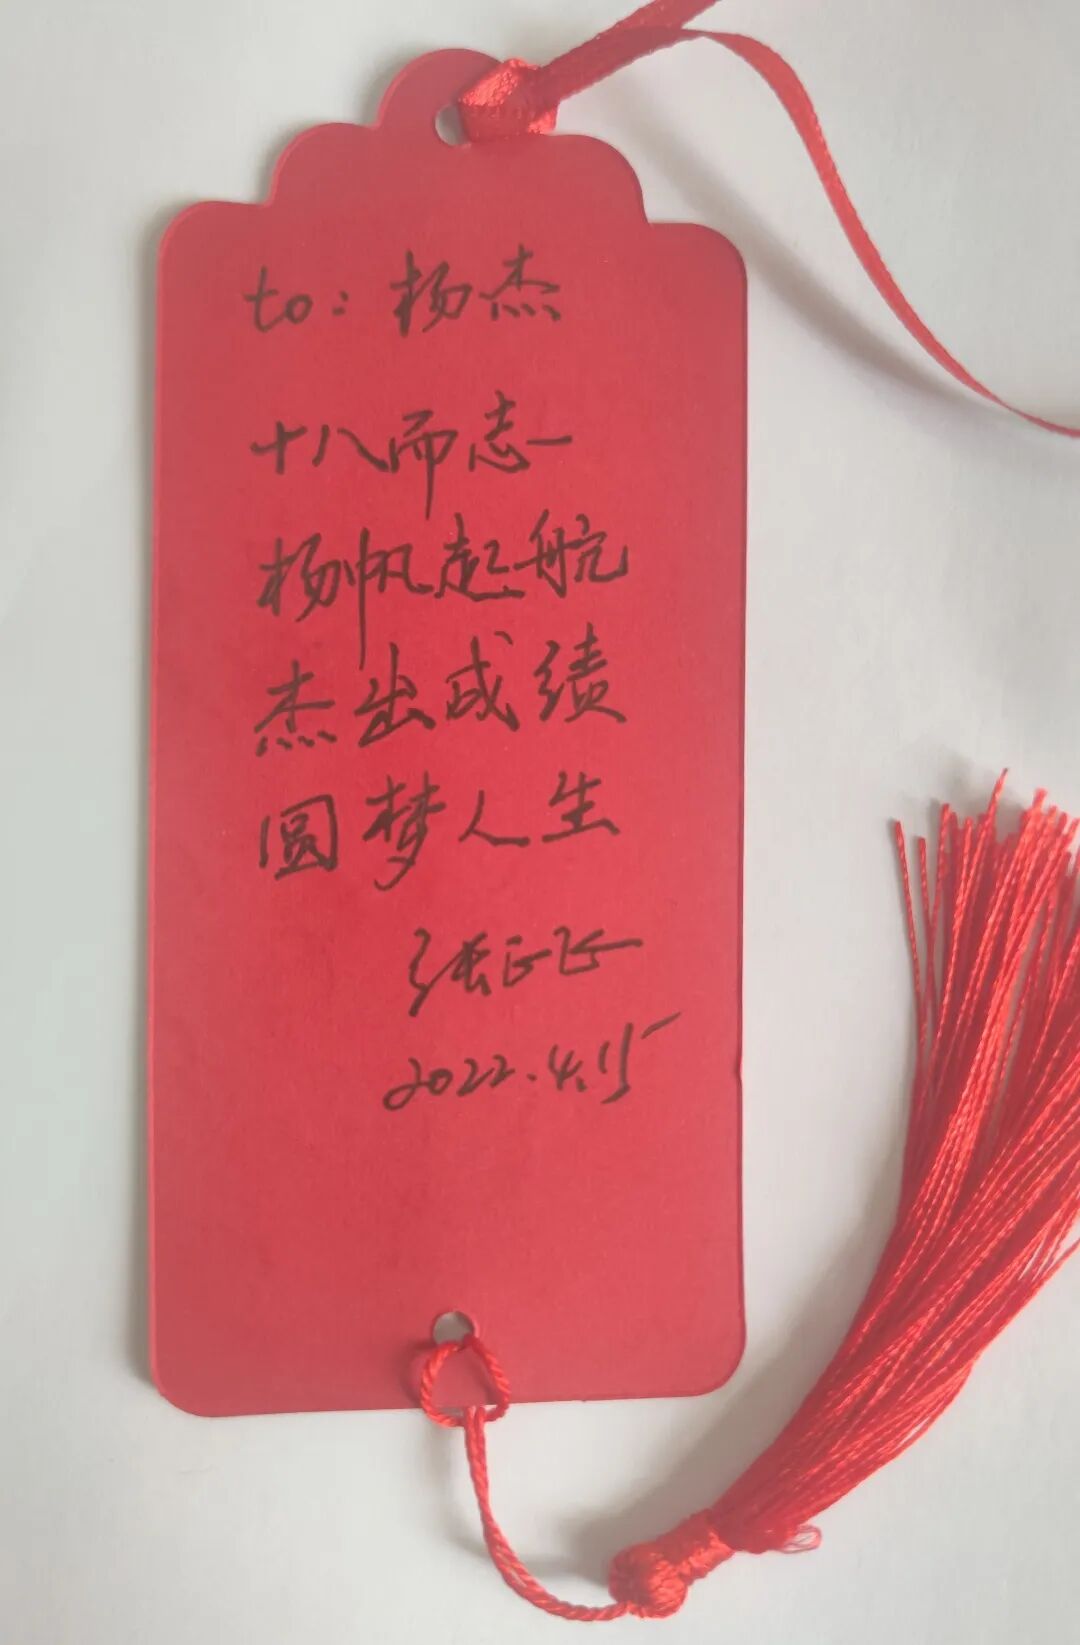 to: 杨杰
十八而志
杨帆起航
杰出成绩
圆梦人生
张正飞
2022.4.15